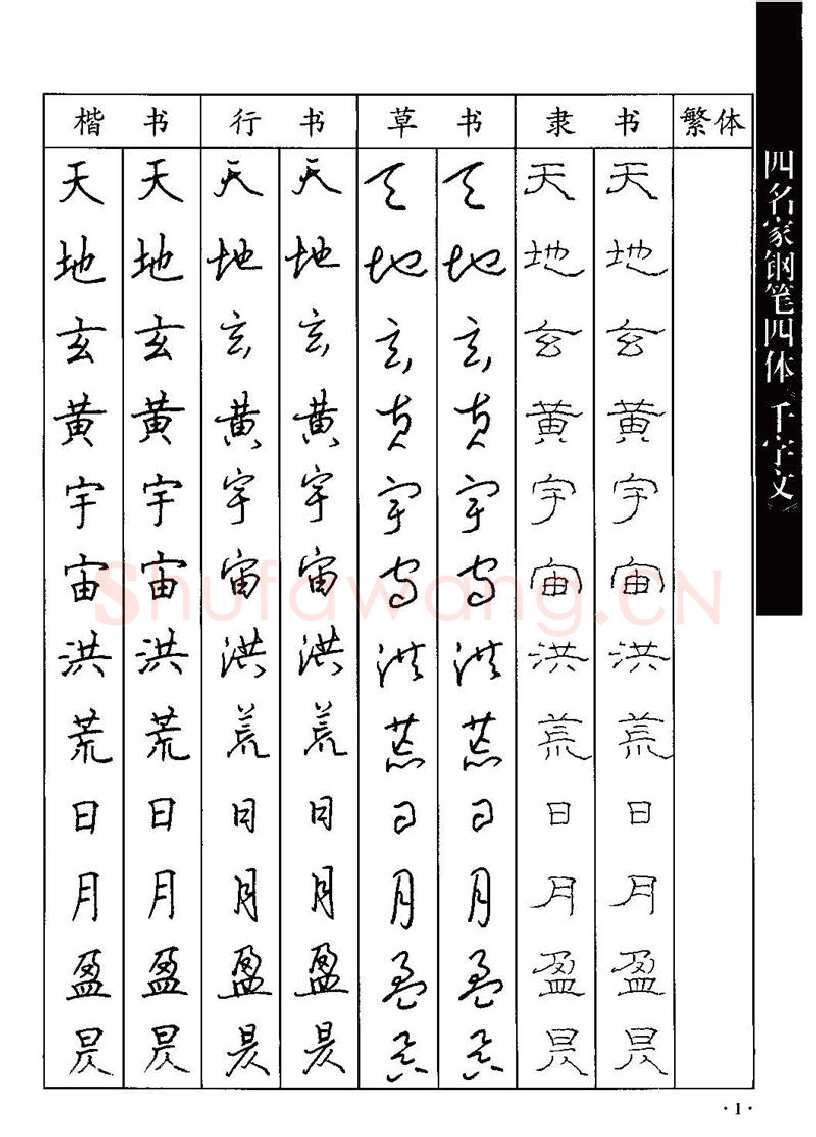 楷 书 行 书 草 书 隶 书 繁体
天 天 天 天 天 天 天 天
地 地 地 地 地 地 地 地
玄 玄 玄 玄 玄 玄 玄 玄
黄 黄 黄 黄 黄 黄 黄 黄
宇 宇 宇 宇 宇 宇 宇 宇
宙 宙 宙 宙 宙 宙 宙 宙
洪 洪 洪 洪 洪 洪 洪 洪
荒 荒 荒 荒 荒 荒 荒 荒
日 日 日 日 日 日 日 日
月 月 月 月 月 月 月 月
盈 盈 盈 盈 盈 盈 盈 盈
昃 昃 昃 昃 昃 昃 昃 昃
四名家钢笔四体《千字文》
Shufawang.CN
·1·